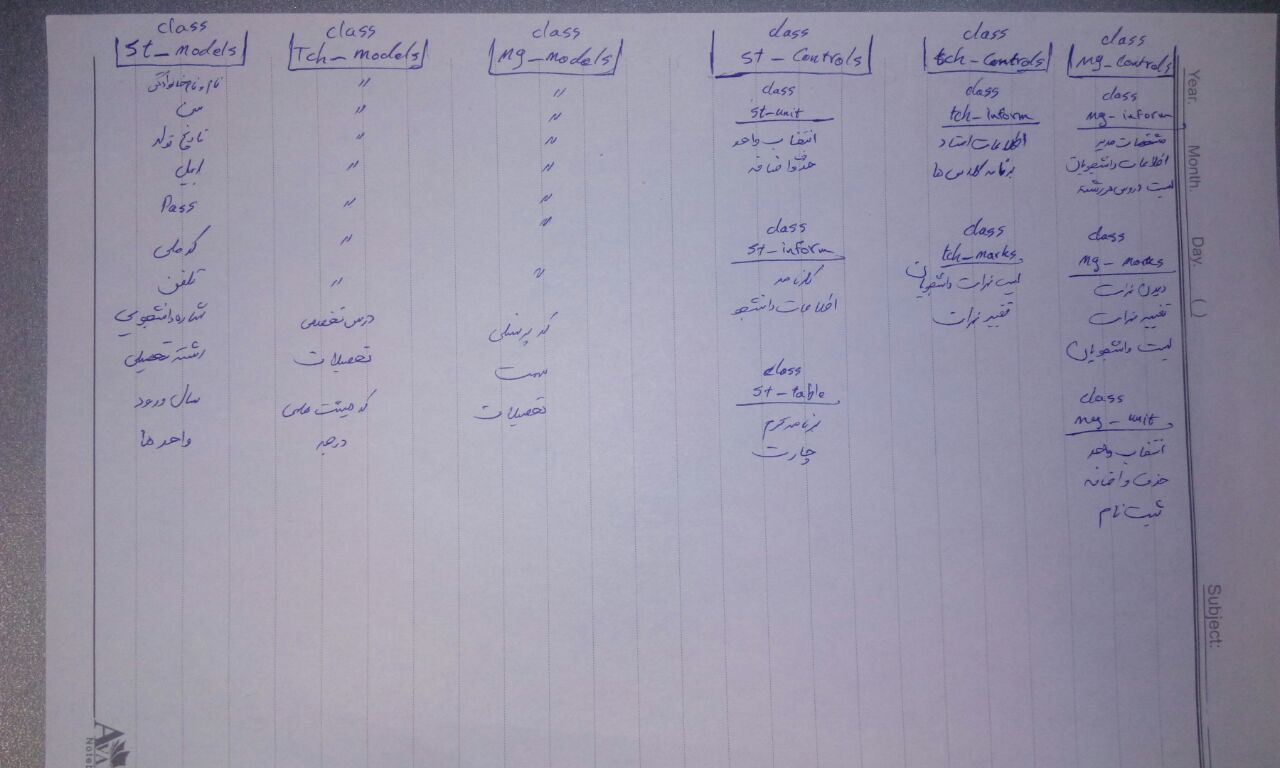 class
St_Models
نام و نام خانوادگی
سن
تاریخ تولد
ایمیل
Pass
کد ملی
تلفن
شماره دانشجویی
رشته تحصیلی
سال ورود
واحد ها
class
Tch_Models
"
"
"
"
"
"
"
درس تخصصی
تحصیلات
کد هیئت علمی
درجه
class
Mg_Models
"
"
"
"
"
"
"
کد پرسنلی
سمت
تحصیلات
class
St_Controls
class
St_unit
انتخاب واحد
حذف و اضافه
class
St_inform
کارنامه
اطلاعات دانشجو
class
St_table
برنامه ترم
چارت
class
tch_Controls
class
tch_Inform
اطلاعات استاد
برنامه کلاس ها
class
tch_marks
لیست نمرات دانشجویان
تغییر نمرات
class
Mg_Controls
class
Mg_inform
مشخصات مدیر
اطلاعات دانشجویان
لیست دروس هر رشته
class
Mg_marks
دیدن نمرات
تغییر نمرات
لیست دانشجویان
class
Mg_unit
انتخاب واحد
حذف و اضافه
ثبت نام
Year. Month. Day. ( )
Subject:
AVA
Note